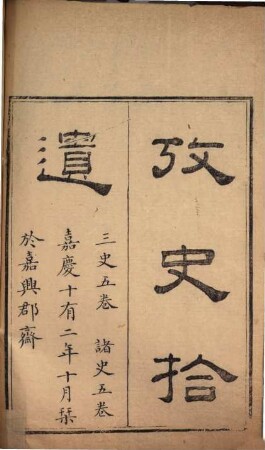 攷史拾
遺
三史五卷 諸史五卷
嘉慶十有二年十月栞
於嘉興郡齋